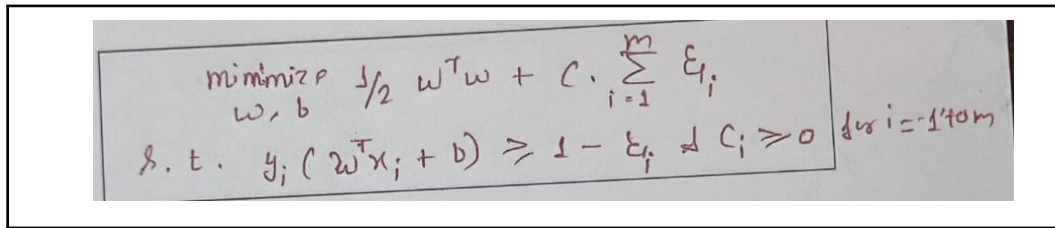 minimize 1/2 wᵀw + C. Σ ξᵢ
w, b i=1 m
s. t. yᵢ ( wᵀxᵢ + b) ≥ 1 - ξᵢ & Cᵢ ≥ 0 for i=1 to m